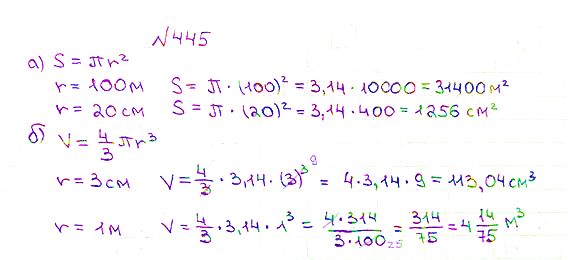 №445
а) S = πr²
r = 100м S = π · (100)² = 3,14 · 10000 = 31400 м²
r = 20 см S = π · (20)² = 3,14 · 400 = 1256 см²
б) V = 4/3 πr³
r = 3 см V = 4/3 · 3,14 · (3)³ 9 = 4 · 3,14 · 9 = 113,04 см³
r = 1м V = 4/3 · 3,14 · 1³ = 4·314/3·100 25 = 314/75 = 4 14/75 м³